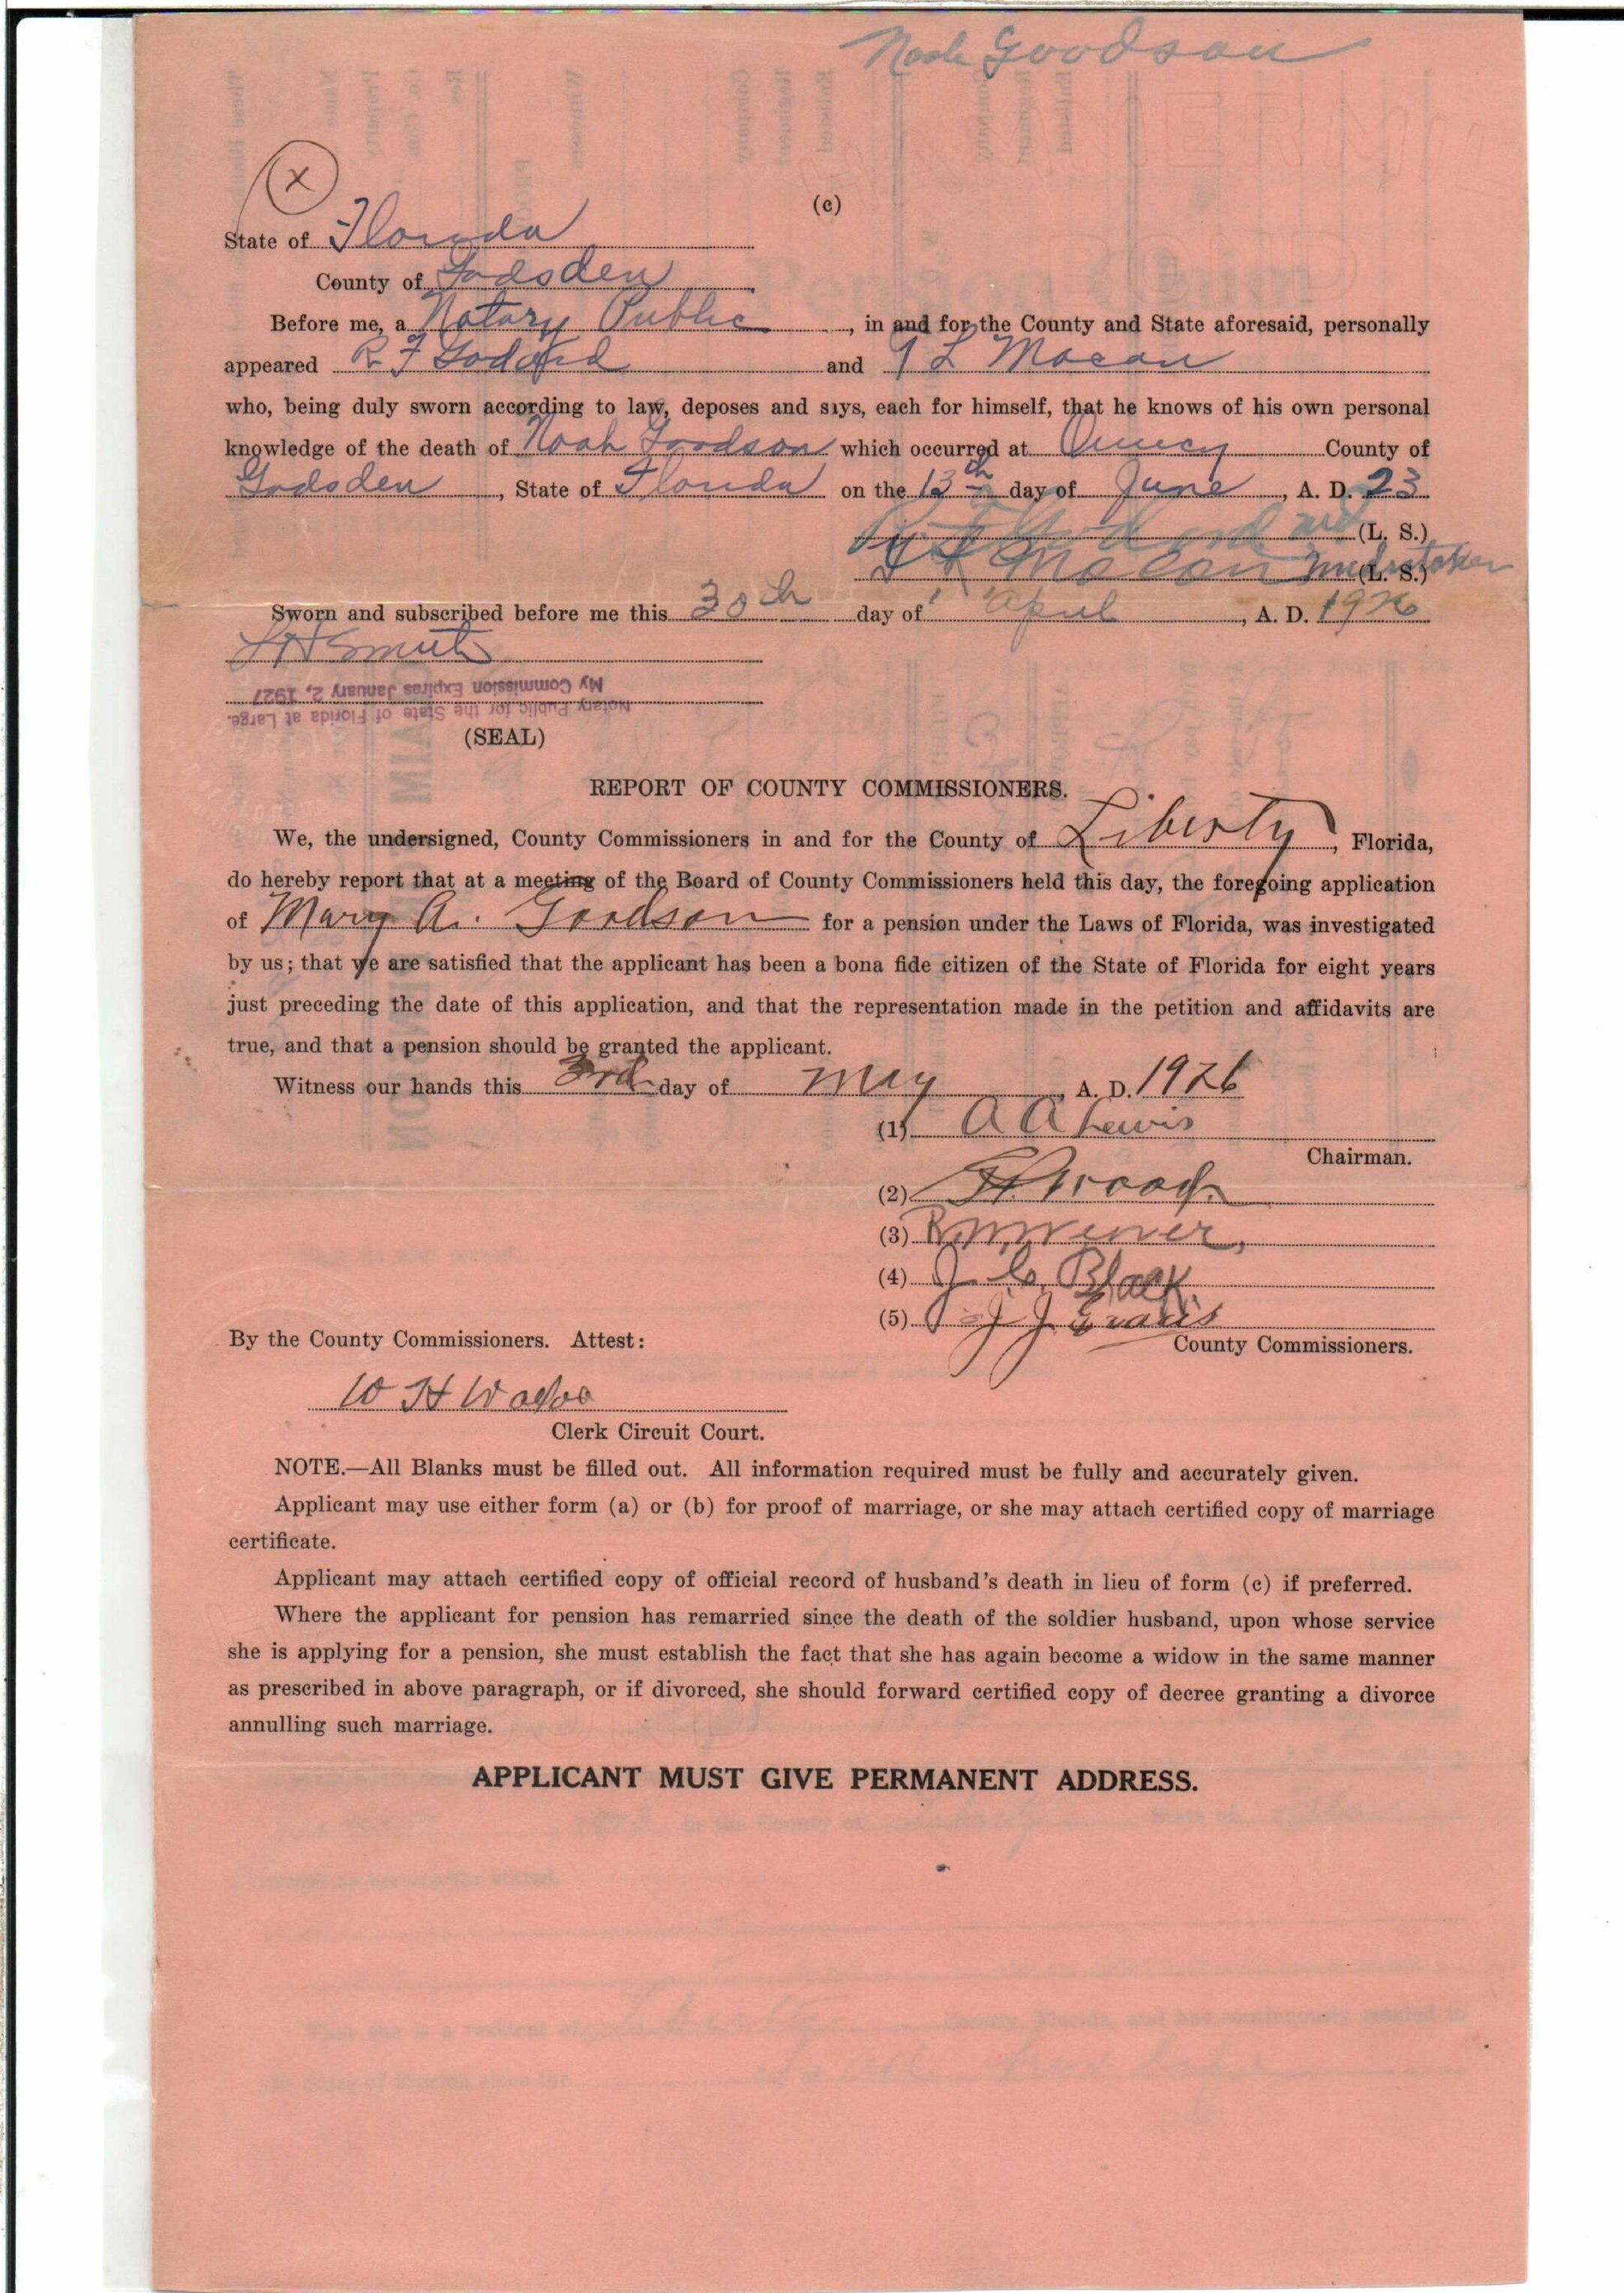 Noah Goodson
X
(c)
State of Florida
County of Gadsden
Before me, a Notary Public, in and for the County and State aforesaid, personally
appeared R F Godard and L Macon
who, being duly sworn according to law, deposes and says, each for himself, that he knows of his own personal
knowledge of the death of Noah Goodson which occurred at Quincy County of
Gadsden, State of Florida on the 13th day of June, A. D. 23
(L. S.)
L Macon Undertaker (L. S.)
Sworn and subscribed before me this 30th day of April, A. D. 1926
My Commission Expires January 2, 1927
Notary Public for the State of Florida at Large.
(SEAL)
REPORT OF COUNTY COMMISSIONERS.
We, the undersigned, County Commissioners in and for the County of Liberty, Florida,
do hereby report that at a meeting of the Board of County Commissioners held this day, the foregoing application
of Mary A. Goodson for a pension under the Laws of Florida, was investigated
by us; that we are satisfied that the applicant has been a bona fide citizen of the State of Florida for eight years
just preceding the date of this application, and that the representation made in the petition and affidavits are
true, and that a pension should be granted the applicant.
Witness our hands this 3rd day of May, A. D. 1926
(1) A A Lewis
Chairman.
(2)
(3)
(4) J. C. Black.
(5) J J Evans
County Commissioners.
By the County Commissioners. Attest:
W H
Clerk Circuit Court.
NOTE.—All Blanks must be filled out. All information required must be fully and accurately given.
Applicant may use either form (a) or (b) for proof of marriage, or she may attach certified copy of marriage
certificate.
Applicant may attach certified copy of official record of husband's death in lieu of form (c) if preferred.
Where the applicant for pension has remarried since the death of the soldier husband, upon whose service
she is applying for a pension, she must establish the fact that she has again become a widow in the same manner
as prescribed in above paragraph, or if divorced, she should forward certified copy of decree granting a divorce
annulling such marriage.
APPLICANT MUST GIVE PERMANENT ADDRESS.